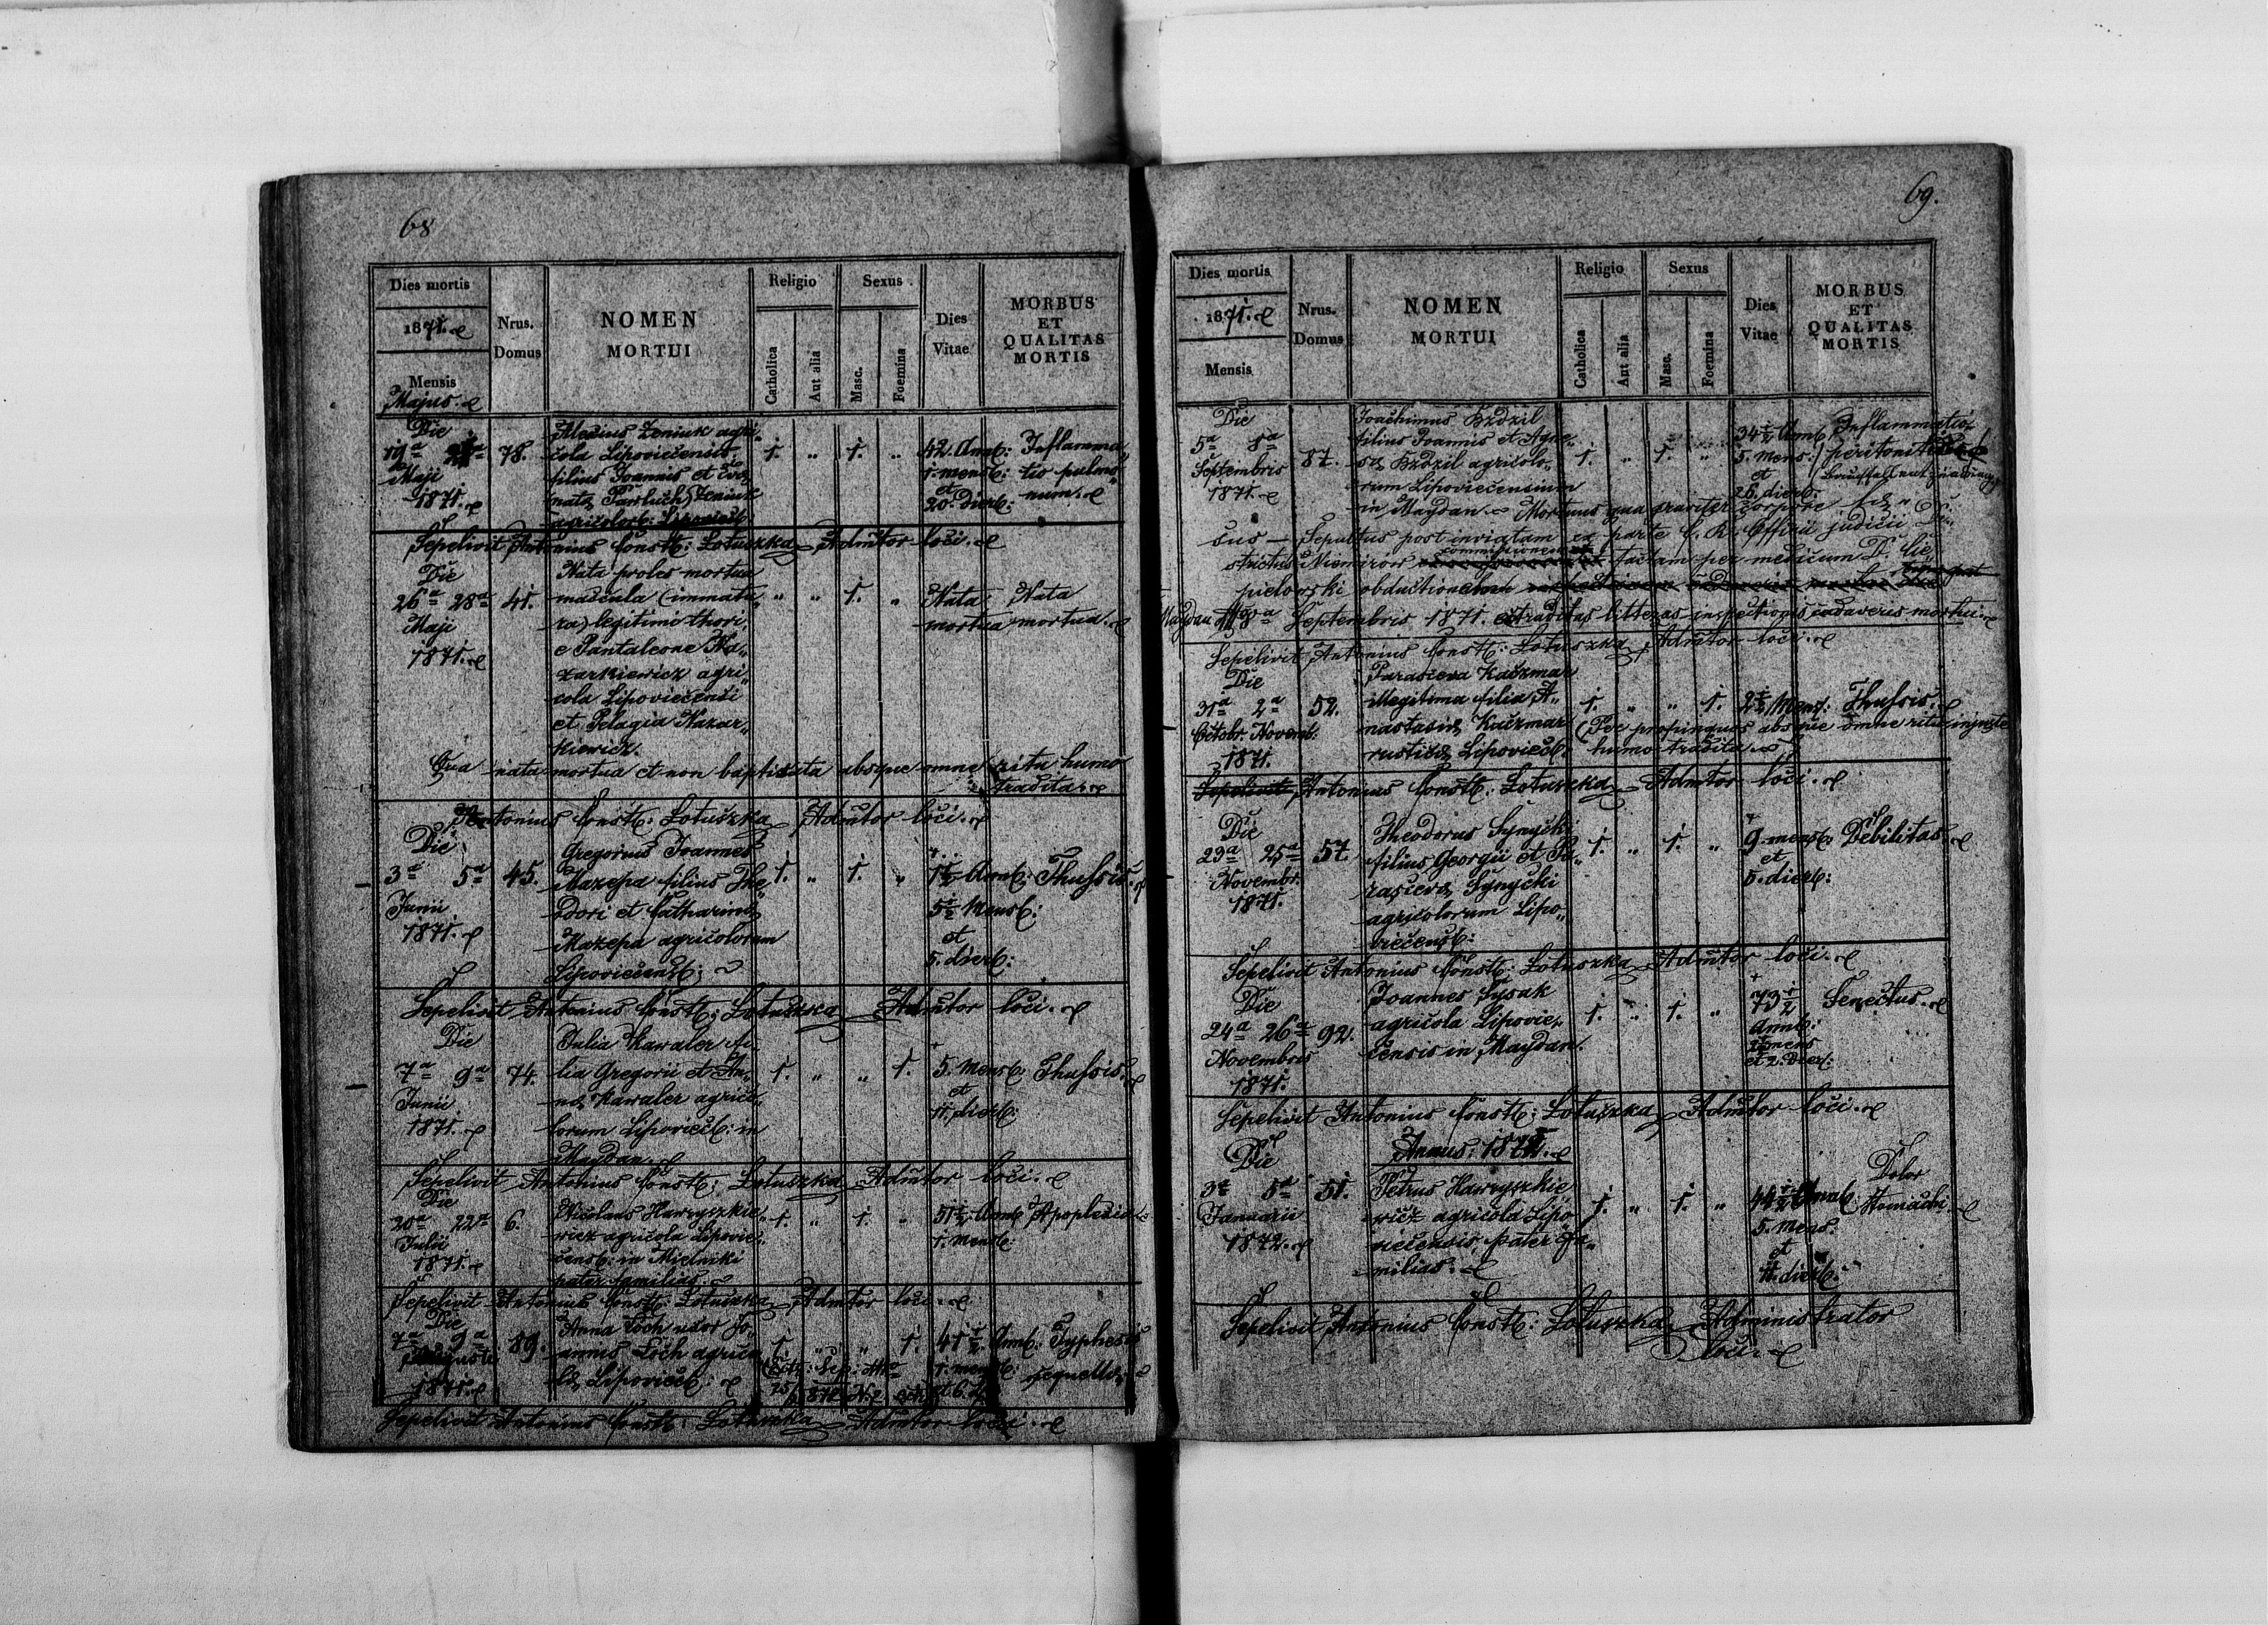 68
Dies mortis
1871.
Mensis
Majus.
Nrus.
Domus
NOMEN
MORTUI
Religio
Catholica
Aut alia
Sexus
Masc.
Foemina
Dies
Vitae
MORBUS
ET
QUALITAS
MORTIS
Die
19a
Maji
1871.
78.
Alexius Zeniuk agri„
cola Lipoviecensis
filius Joannis et Evæ
natæ Pawluch Zeniuk
agricolar: Lipoviecb:
1. „ 1. „
42. Annb:
1. mensb:
et
20. Dieb:
Inflamma„
tio pulmo„
num.
Sepelivit Antonius Constb: Lotuszka Admtor loci.
Die
26a 28a
Maji
1871.
41.
Nata proles mortua
mascula (immatu„
ra) legitimi thori,
e Pantaleone Na„
zarkiewicz agri„
cola Lipoviecensi
et Pelagia Nazar„
kiewicz.
„ „ 1. „
Nata
mortua
Nata
mortua.
Qua nata mortua et non baptisata absque omne ritu humo
tradita.
Antonius Constb: Lotuszka Admtor loci.
Die
3a 5a
Junii
1871.
45.
Gregorius Joannes
Mazepa filius The„
odori et Catharinæ
Mazepa agricolorum
Lipoviecensb:
1. „ 1. „
1½ Annb:
5½ Mensb:
et
5. dieb:
Thussis.
Sepelivit Antonius Constb: Lotuszka Admtor loci.
Die
7a 9a
Junii
1871.
74.
Julia Kawaler fi„
lia Gregorii et An„
næ Kawaler agrico„
lorum Lipoviecb: in
Maydan.
1. „ „ 1.
5. Mensb:
et
11. dieb:
Thussis.
Sepelivit Antonius Constb: Lotuszka Admtor loci.
Die
20a 22a
Julii
1871.
6.
Nicolaus Hawryszkie„
wicz agricola Lipovie„
censb: in Mielniki
pater familias.
1. „ 1. „
51½ Annb:
1. Mensb:
Apoplexia
Sepelivit Antonius Constb: Lotuszka Admtor loci.
Die
7a 9a
Augusti
1871.
89.
Anna Loch uxor Jo„
annis Loch agrico„
læ Lipoviecb:
1. „ „ 1.
41½ Annb:
1. mensb:
et 6. d.
Typhesis
sequella.
Sepelivit Antonius Constb: Lotuszka Admtor loci.
69.
Dies mortis
1871.
Mensis
Nrus.
Domus
NOMEN
MORTUI
Religio
Catholica
Aut alia
Sexus
Masc.
Foemina
Dies
Vitae
MORBUS
ET
QUALITAS
MORTIS
Die
5a 8a
Septembris
1871.
87.
Joachimus Bzdzil
filius Joannis et Agne„
sæ Bzdzil agricolo„
rum Lipoviecensium
in Maydan. Mortuus qua graviter corpore læ„
1. „ 1. „
34½ Annb:
5. mens:
et
26. dieb:
Inflammatio
peritonitis
sus — Sepultus post inviatam ex parte C. R. Officii judicii Di„
strictus Niemirow commissionem factam per medicum D.
pielowski obductionem
Maydan 8a Septembris 1871. extraditas litteras inspectionis cadaveris mortui.
Sepelivit Antonius Constb: Lotuszka Admtor loci.
Die
31a 2a
Octobr. Novemb.
1871.
52.
Parasceva Kaczmar
illegitima filia A„
nastasiæ Kaczmar
rusticæ Lipoviecb:
1. „ „ 1.
2½ Mens:
Thussis.
(Per propinquos absque omne ritu injuste
humo tradita.)
Antonius Constb: Lotuszka Admtor loci.
Die
23a 25a
Novembr.
1871.
57.
Theodorus Synycki
filius Georgii et Pa„
rascevæ Synycki
agricolorum Lipo„
viecensb:
1. „ 1. „
9. mensb:
et
5. dieb:
Debilitas.
Sepelivit Antonius Constb: Lotuszka Admtor loci.
Die
24a 26a
Novembris
1871.
92.
Joannes Sysak
agricola Lipovie„
censis in Maydan.
1. „ 1. „
73½
Annb:
mens
et 2. Dieb:
Senectus.
Sepelivit Antonius Constb: Lotuszka Admtor loci.
Annus: 1872.
Die
3a 5a
Januarii
1872.
51.
Petrus Hawryszkie„
wicz agricola Lipo„
viecensis, pater fa„
milias.
1. „ 1. „
44½ Annb:
5. Mens.
et
11. dieb:
Dolor
Stomachi.
Sepelivit Antonius Constb: Lotuszka Administrator
loci.